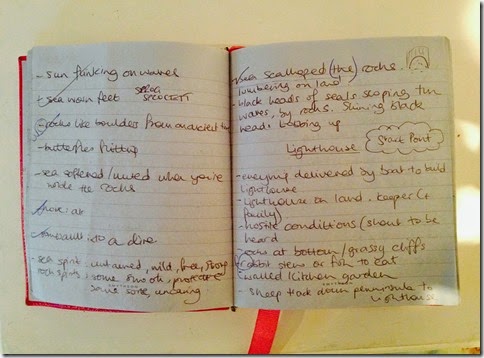 - sun flanking on waves
+ sea worn feet
rocks like boulders from an ancient
- butterflies flitting
- sea softened / muted when you're
inside the rocks
into a dive
- sea spirit, untamed, wild, free, strong
rock spirits, some smooth, protective
some sore, uncaring.
sea scalloped (the) rocks.
lumbering on land
- black heads of seals scoping the
waves, by rocks. Shining black
heads bobbing up
Lighthouse
Start Point
- everything delivered by boat to build
lighthouse
- lighthouse on land. keeper (+
family)
- hostile conditions (shout to be
heard
rocks at bottom / grassy cliffs
rabbit stew or fish to eat
walled kitchen garden
- sheep track down peninsula to
lighthouse